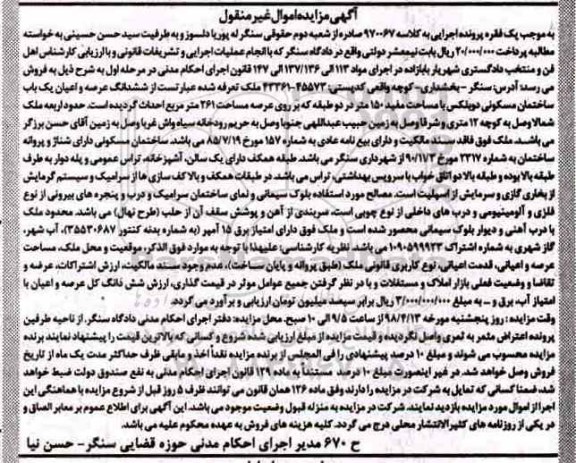 آگهی مزایده اموال غیر منقول
به موجب یک فقره پرونده اجرایی به کلاسه ۹۷۰۰۶۷ صادره از شعبه دوم حقوقی سنگر له پوریا دلسوز و به طرفیت سید حسن حسینی به خواسته
مطالبه پرداخت ۲۰/۰۰۰/۰۰۰ ریال بابت نیمعشر دولتی واقع در دادگاه سنگر که با انجام عملیات اجرایی و تشریفات قانونی و با ارزیابی کارشناس اهل
فن و منتخب دادگستری شهریار بابازاده در اجرای مواد ۱۱۳ الی ۱۳۷/۱۳۶ الی ۱۴۷ قانون اجرای احکام مدنی در مرحله اول به شرح ذیل به فروش
می رسد: آدرس: سنگر - بخشداری- کوچه واقعی کدپستی: ۴۵۵۷۳-۴۳۳۶۱ ملک تعرفه شده عبارتست از ششدانگ عرصه و اعیان یک باب
ساختمان مسکونی دوبلکس با مساحت مفید ۱۵۰ متر در دو طبقه که بر روی عرصه مساحت ۲۶۱ متر مربع احداث گردیده است. حدود اربعه ملک
شمالا وصل به کوچه ۱۲ متری و شرقا وصل به زمین حبیب عبداللهی جنوبا وصل به حریم رودخانه سیاه واش غربا وصل به زمین آقای حسن برزگر
می باشد. ملک فوق فاقد سند مالکیت و دارای بیع نامه عادی به شماره ۱۵۷ مورخ ۸۵/۷/۱۹ می باشد. ساختمان مسکونی دارای شناژ و پروانه
ساختمان به شماره ۲۳۱۷ مورخ ۹۰/۱۱/۳ از شهرداری سنگر می باشد. طبقه همکف دارای یک سالن، آشپزخانه، تراس عمومی و پله دوار به طرف
طبقه بالا بوده و طبقه بالا دو اتاق خواب با سرویس بهداشتی، تراس می باشد. در طبقات همکف و بالا کف سازی ها از سرامیک و سیستم گرمایش
از بخاری گازی و سرمایش از اسپلیت است. مصالح مورد استفاده بلوک سیمانی و نمای ساختمان سرامیک و درب و پنجره های بیرونی از نوع
فلزی و آلومینیومی و درب های داخلی از نوع چوبی است، سربندی از آهن و پوشش سقف آن از حلب (طرح نهال) می باشد. محدود ملک
با درب آهنی و دیوار بلوک سیمانی محصور شده است و ملک فوق دارای امتیاز برق ۱۵ آمپر (به شماره بدنه کنتور ۳۵۵۳۰۶۸۷)، آب شهر،
گاز شهری به شماره اشتراک ۱۰۹۰۵۹۹۹۲۳ می باشد. نظریه کارشناسی: علیهذا با توجه به موارد فوق الذکر، موقعیت و محل ملک، مساحت
عرصه و اعیانی، قدمت اعیانی، نوع کاربری قانونی ملک (طبق پروانه و پایان ساخت)، عدم وجود سند مالکیت، ارزش اشتراکات، عرضه و
تقاضا و وضعیت فعلی بازار املاک و مستغلات و با در نظر گرفتن جمیع عوامل موثر در قیمت گذاری، ارزش شش دانگ کل عرصه و اعیان با
امتیاز آب، برق و ـ به مبلغ ۳/۰۰۰/۰۰۰/۰۰۰ ریال برابر سیصد میلیون تومان ارزیابی و برآورد می گردد.
وقت مزایده: روز پنجشنبه مورخه ۹۸/۴/۱۳ از ساعت ۹/۵ الی ۱۰ صبح. محل مزایده: دفتر اجرای احکام مدنی دادگاه سنگر. از ناحیه طرفین
پرونده اعتراض مثمر به ثمری واصل نگردیده و قیمت مزایده از مبلغ ارزیابی شده شروع و کسانی که بالاترین قیمت را پیشنهاد نمایند برنده
مزایده محسوب می شوند و مبلغ ۱۰ درصد پیشنهادی را فی المجلس از برنده مزایده نقداً اخذ و مابقی ظرف حداکثر مدت یک ماه از تاریخ
فروش وصول خواهد شد. در غیر اینصورت مبلغ ۱۰ درصد مستنداً به ماده ۱۲۹ قانون اجرای احکام مدنی به نفع صندوق دولت ضبط خواهد
شد، ضمنا کسانی که تمایل به شرکت در مزایده را دارند وفق ماده ۱۲۶ همان قانون می توانند ظرف ۵ روز قبل از شروع مزایده با هماهنگی این
اجرا از اموال مورد مزایده بازدید نمایند. شرکت در مزایده به منزله قبول وضعیت موجود می باشد. این آگهی برای اطلاع عموم بر معابر الصاق و
در یکی از روزنامه های کثیرالانتشار محلی درج می گردد. کلیه هزینه های فروش به عهده محکوم علیه می باشد.
ح ۶۷۰ مدیر اجرای احکام مدنی حوزه قضایی سنگر- حسن نیا